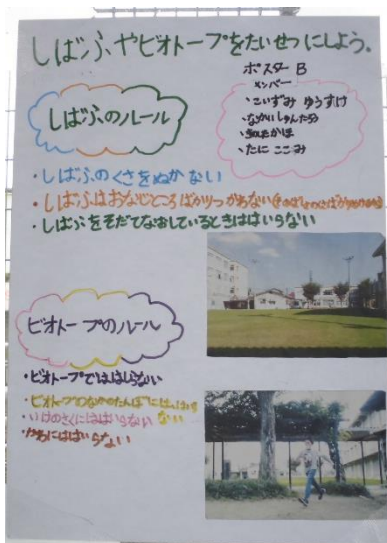 しばふやビオトープをたいせつにしよう。
ポスターB
メンバー
・こいずみ ゆうすけ
・なかいしゅんたろう
かほ
・たに ここみ
しばふのルール
・しばふのくさをぬかない
・しばふはおなじところばかりつかわない
・しばふをそだてなおしているときははいらない
ビオトープのルール
・ビオトープでははしらない
・ビオトープのなかのたんぼにはいらない
・いけのさくにははいらない